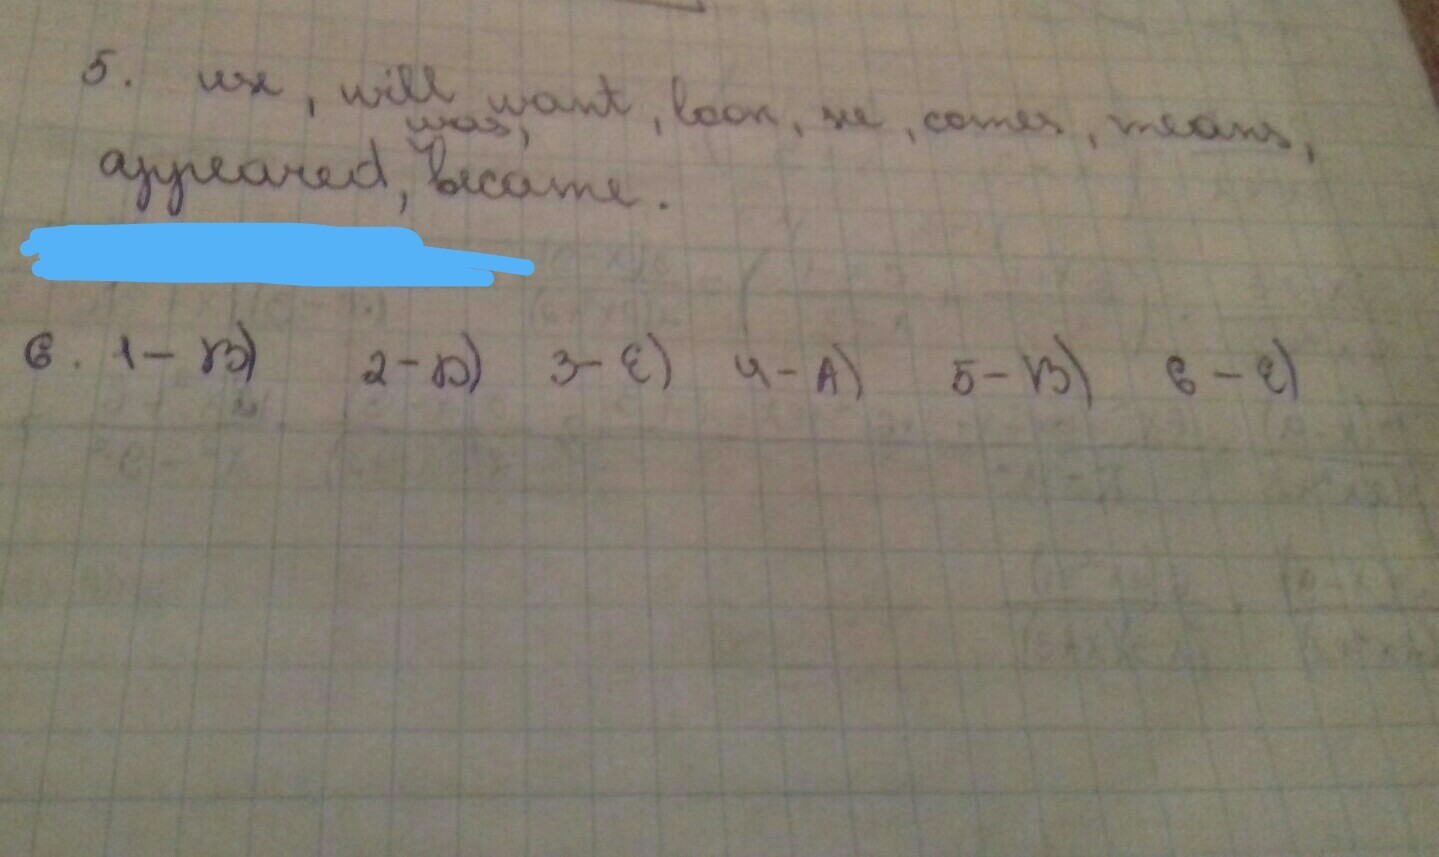 5. use, will want, look, use, comes, means,
was,
appeared, became.
6. 1-B) 2-D) 3-E) 4-A) 5-B) 6-E)